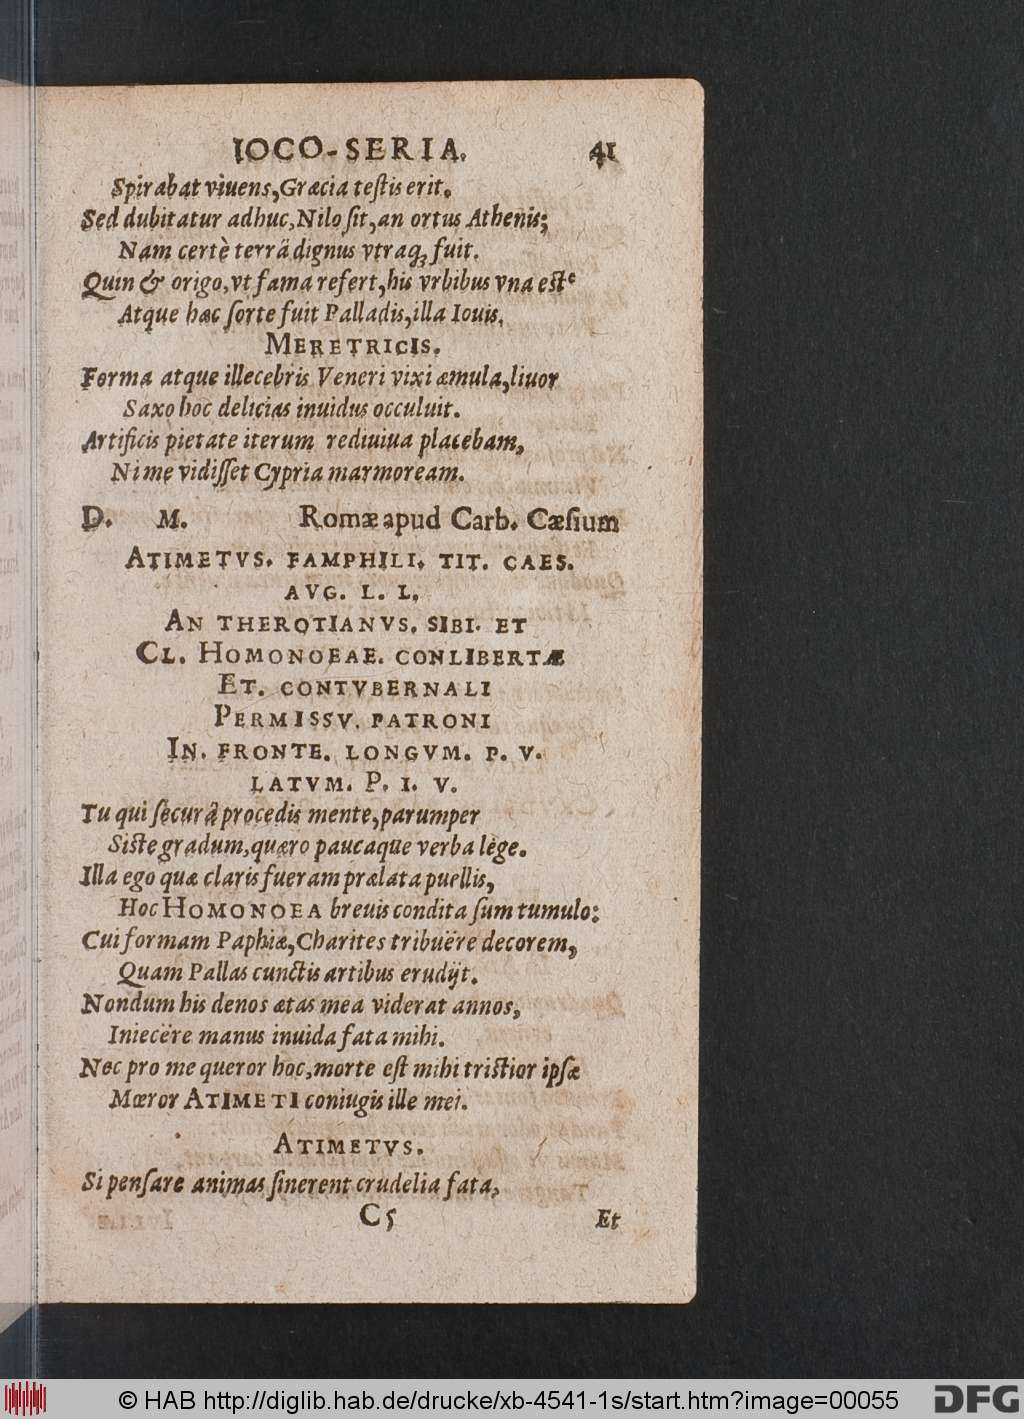 IOCO-SERIA. 41
Spirabat viuens, Græcia teſtis erit.
Sed dubitatur adhuc, Nilo ſit, an ortus Athenis;
Nam certè terrâ dignus vtraq; fuit.
Quin & origo, vt fama refert, his vrbibus vna eſte
Atque hac ſorte fuit Palladis, illa Iouis.
MERETRICIS.
Forma atque illecebris Veneri vixi æmula, liuor
Saxo hoc delicias inuidus occuluit.
Artificis pietate iterum rediuiua placebam,
Ni me vidiſſet Cypria marmoream.
D. M. Romæ apud Carb. Cæſium
ATIMETVS. FAMPHILI. TIT. CAES.
AVG. L. L.
AN THEROTIANVS. SIBI. ET
CL. HOMONOEAE. CONLIBERTÆ
ET. CONTVBERNALI
PERMISSV. PATRONI
IN. FRONTE. LONGVM. P. V.
LATVM. P. I. V.
Tu qui ſecurâ procedis mente, parumper
Siſte gradum, quæro paucaque verba lège.
Illa ego quæ claris fueram prælata puellis,
Hoc HOMONOEA breuis condita ſum tumulo:
Cui formam Paphiæ, Charites tribuëre decorem,
Quam Pallas cunctis artibus erudijt.
Nondum bis denos ætas mea viderat annos,
Iniecëre manus inuida fata mihi.
Nec pro me queror hoc, morte eſt mihi triſtior ipſæ
Mœror ATIMETI coniugis ille mei.
ATIMETVS.
Si penſare animas ſinerent crudelia fata,
C5 Et
© HAB http://diglib.hab.de/drucke/xb-4541-1s/start.htm?image=00055 DFG